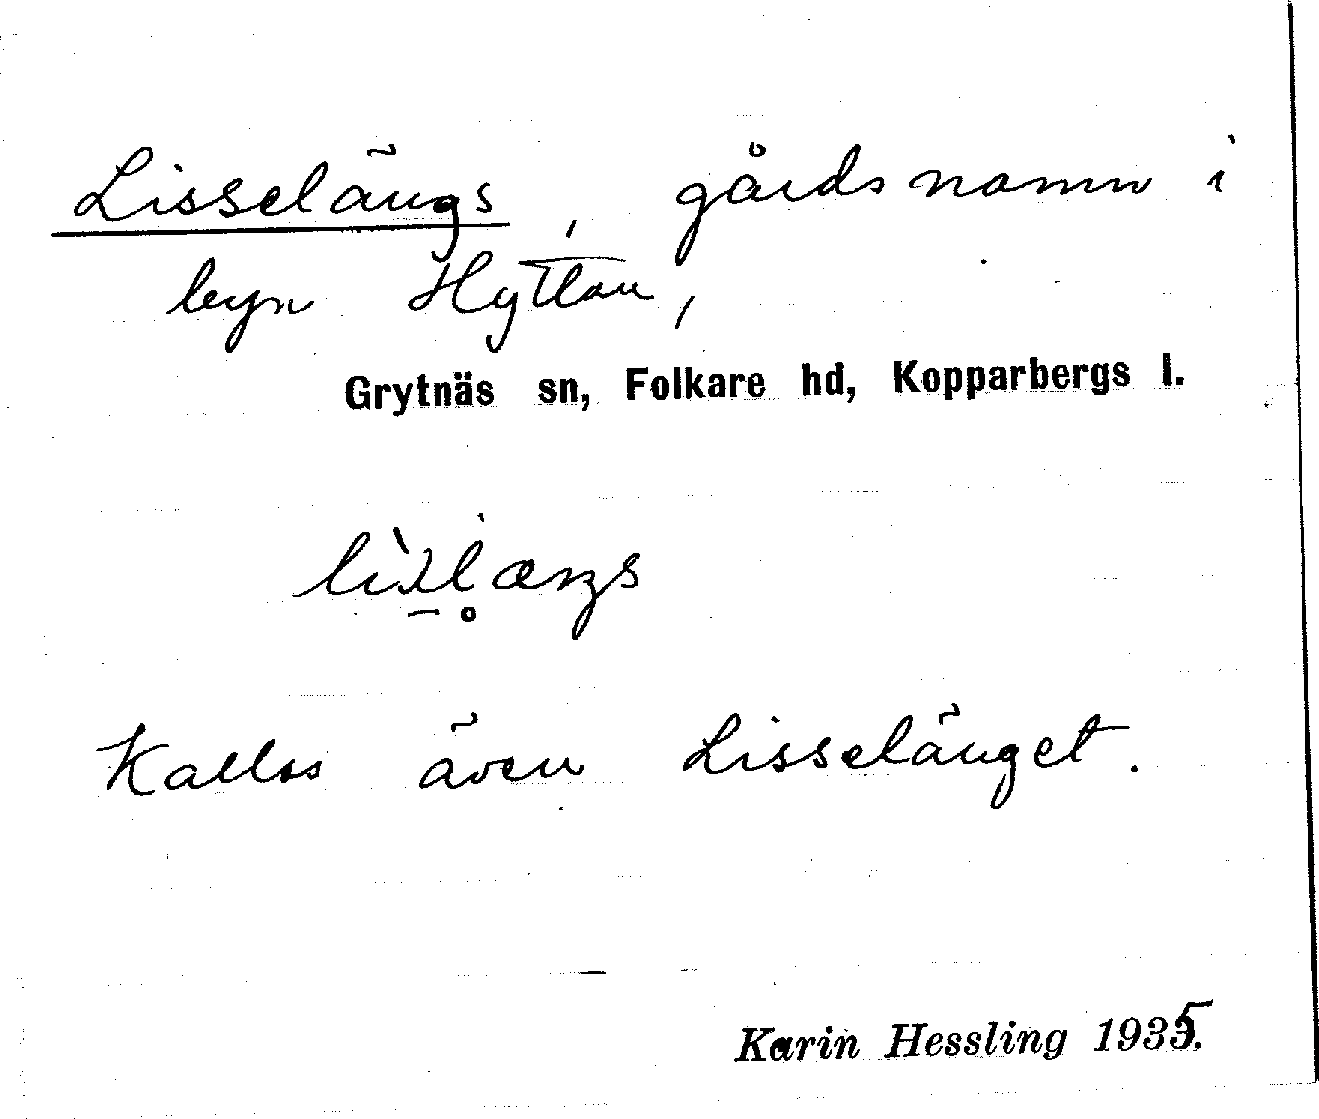 Lisselängs, gårdsnamn i
byn Hyttan,
Grytnäs sn, Folkare hd, Kopparbergs l.
Kallas även Lisselänget.
Karin Hessling 1935.